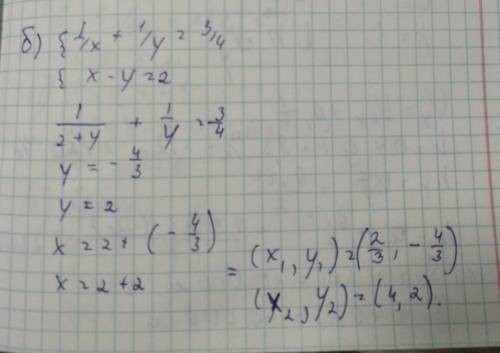 б) { 1/x + 1/y = 3/4
{ x - y = 2
1/(2+y) + 1/y = 3/4
y = - 4/3
y = 2
x = 2 + (- 4/3)
x = 2 + 2
= (x₁, y₁) = (2/3, - 4/3)
(x₂, y₂) = (4, 2).